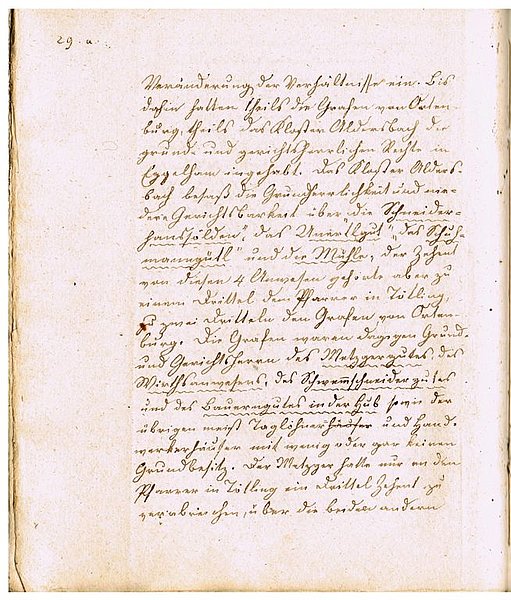 29. a.
Veränderung der Verhältnisse ein. Bis
dahin hatten theils die Grafen von Orten-
burg, theils das Kloster Aldersbach die
grund- und gerichtsherrlichen Rechte in
Egglham inngehabt. Das Kloster Alders-
bach besaß die Grundherrlichkeit und nie-
dere Gerichtsbarkeit über "die Schneider-
hanssölden", das Unertlgut", "das Schuh-
manngütl" und die Mühle; der Zehent
von diesen 4 Anwesen gehörte aber zu
einem Drittel dem Pfarrer in Tötling,
zu zwei Dritteln den Grafen von Orten-
burg. Die Grafen waren dagegen Grund-
und Gerichtsherrn des Metzgergutes, des
Wirthsanwesens, des Schwemmschneidergutes
und des Bauerngutes in der Hub sowie der
übrigen meist Taglöhnerhäuser und Hand-
werkerhäuser mit wenig oder gar keinem
Grundbesitz. Der Metzger hatte nur an den
Pfarrer in Tötling ein Drittel Zehent zu
verabreichen, über die beiden andern